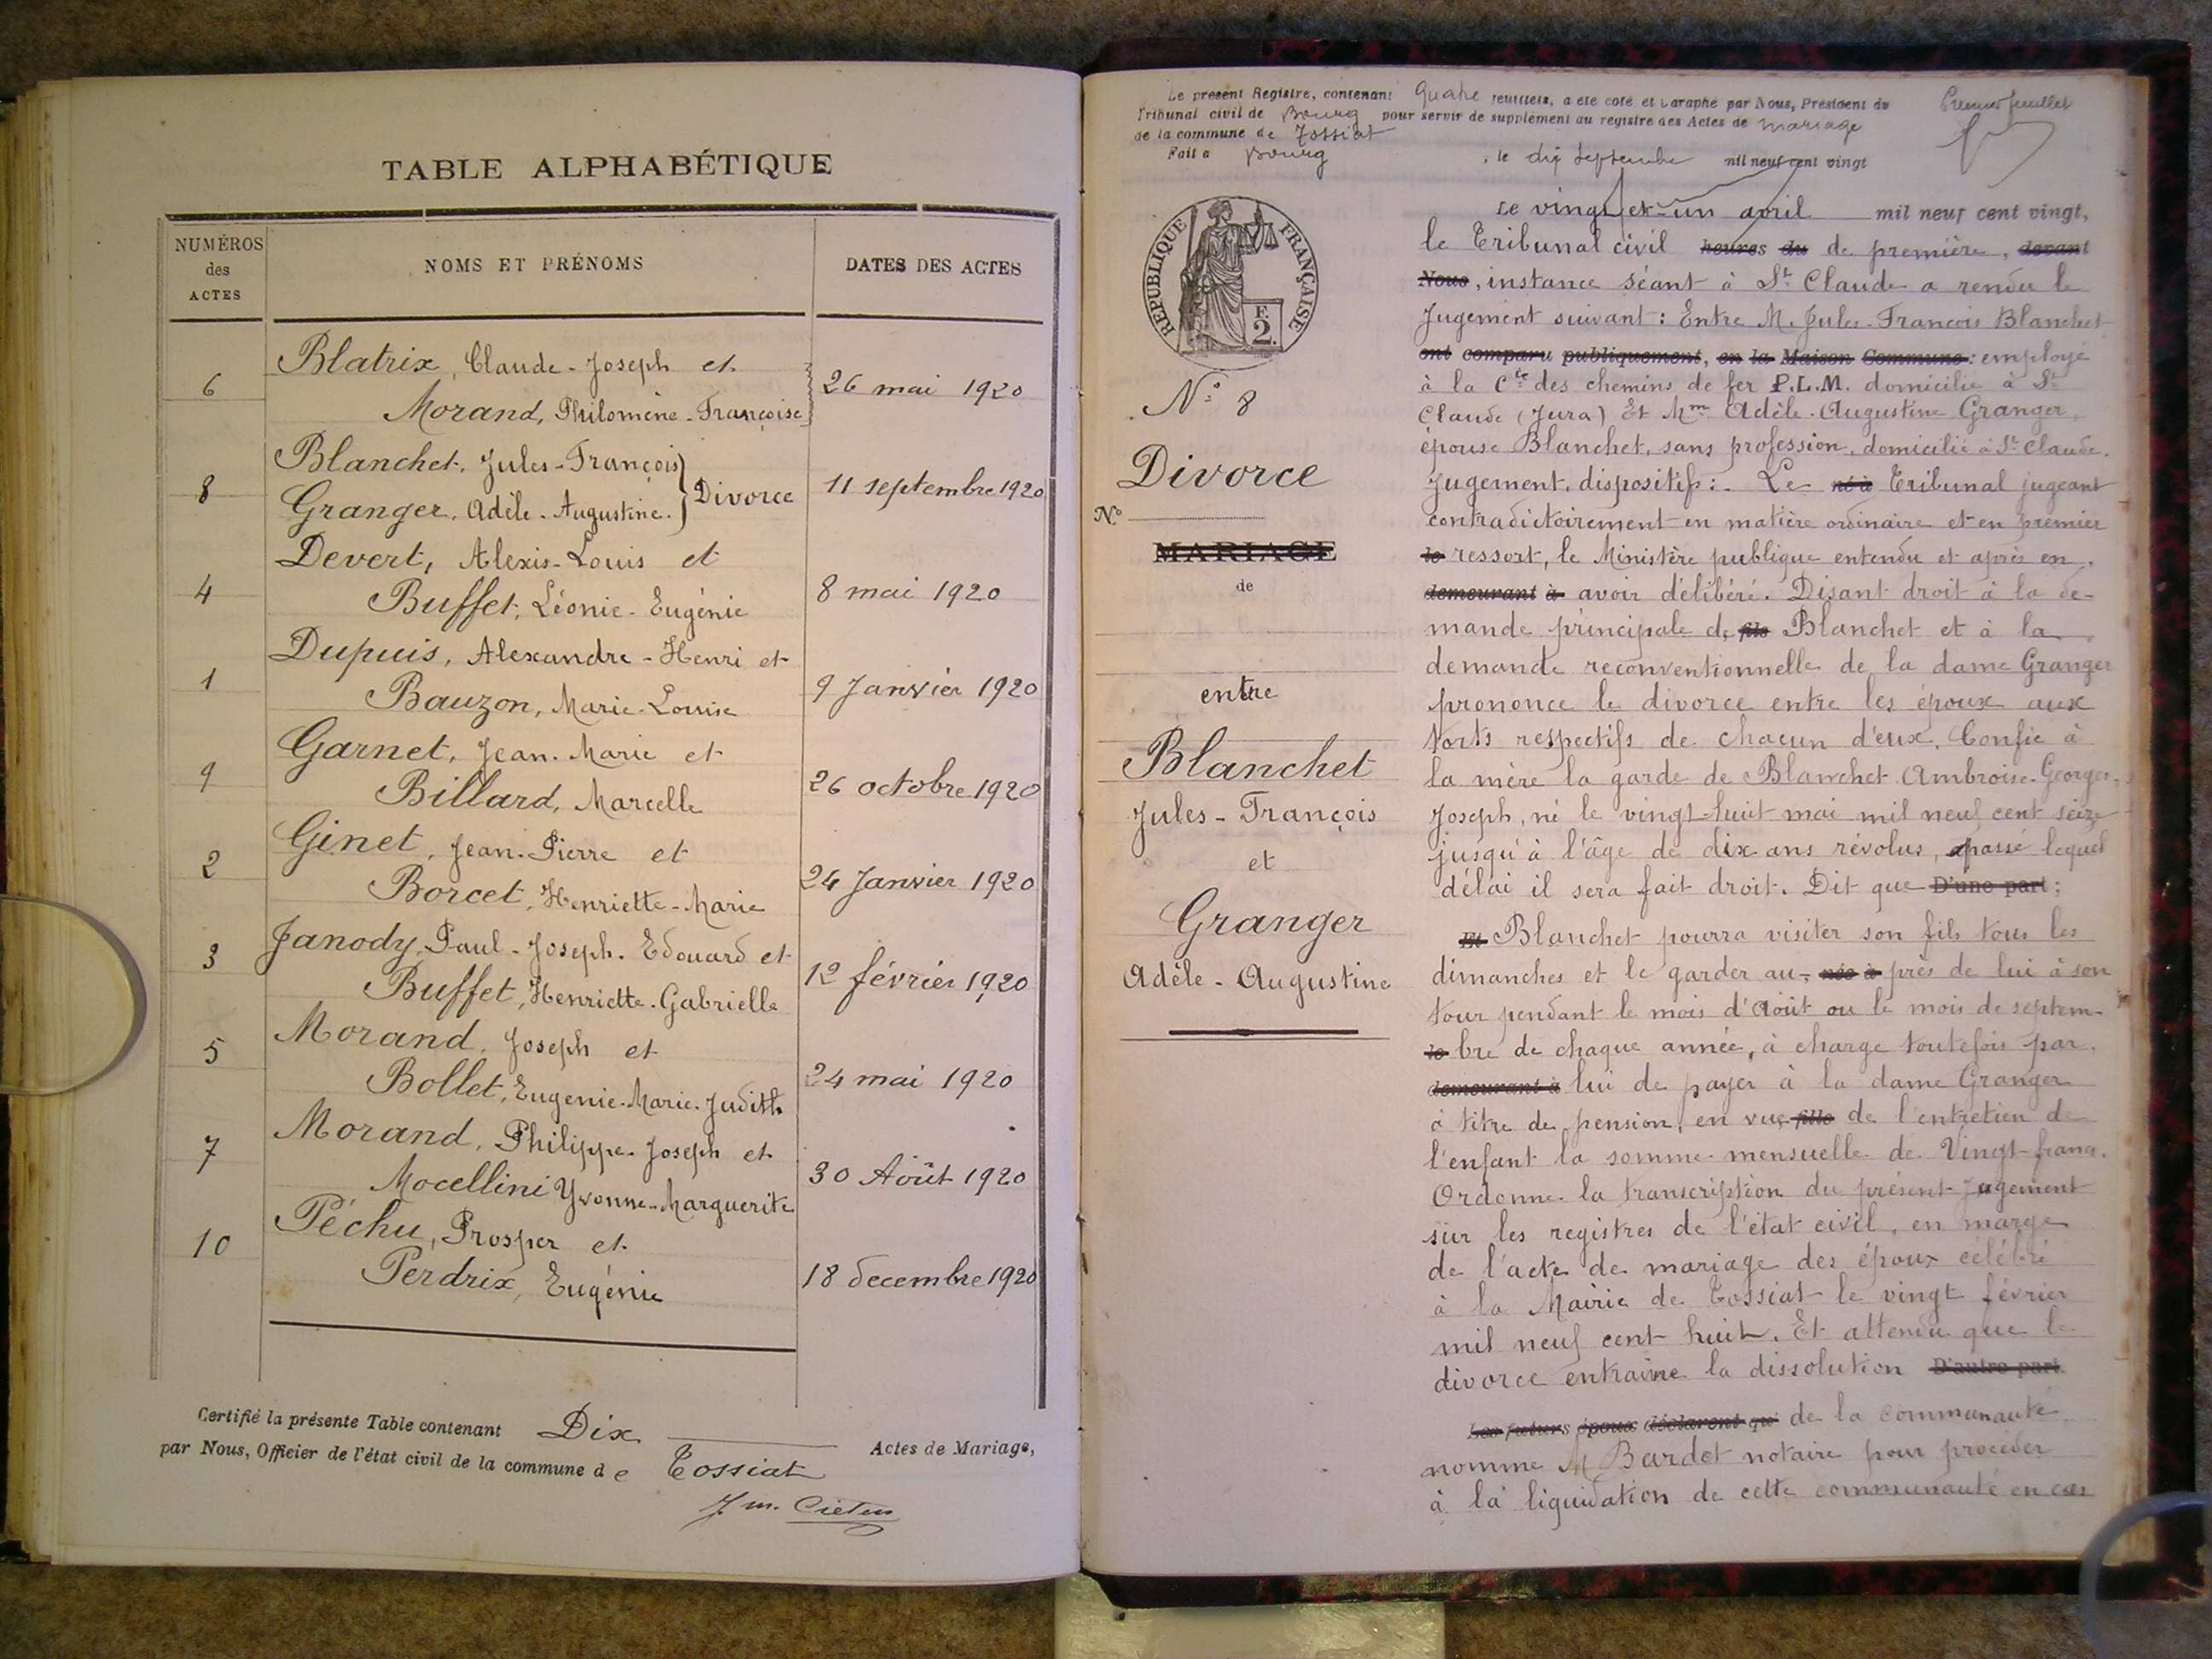 TABLE ALPHABÉTIQUE
NUMÉROS des ACTES
NOMS ET PRÉNOMS
DATES DES ACTES
6
Blatrix, Claude-Joseph et
Morand, Philomène-Françoise
26 mai 1920
8
Blanchet, Jules-François
Granger, Adèle-Augustine.
Divorce
11 septembre 1920
Devert, Alexis-Louis et
4
Buffet, Léonie-Eugénie
8 mai 1920
Dupuis, Alexandre-Henri et
1
Bauzon, Marie-Louise
9 Janvier 1920
Garnet, Jean-Marie et
9
Billard, Marcelle
26 octobre 1920
Ginet, Jean-Pierre et
2
Borcet, Henriette-Marie
24 Janvier 1920
Janody, Paul-Joseph-Edouard et
3
Buffet, Henriette-Gabrielle
12 février 1920
Morand, Joseph et
5
Bollet, Eugenie-Marie-Judith
24 mai 1920
Morand, Philippe-Joseph et
7
Mocellini Yvonne-Marguerite
30 Août 1920
Péchu, Prosper et
10
Perdrix, Eugénie
18 decembre 1920
Certifié la présente Table contenant Dix Actes de Mariage,
par Nous, Officier de l'état civil de la commune de Tossiat
Le présent Registre, contenant Quatre feuillets, a été coté et paraphé par Nous, Président du
Tribunal civil de Bourg pour servir de supplément au registre des Actes de mariage
de la commune de Tossiat
Fait à Bourg, le dix Septembre mil neuf cent vingt
Premier feuillet
RÉPUBLIQUE FRANÇAISE
F. 2.
N° 8
Divorce
N°
MARIAGE
de
entre
Blanchet
Jules-François
et
Granger
Adèle-Augustine
Le vingt et un avril mil neuf cent vingt,
le Tribunal civil heures du de première, devant
Nous, instance séant à St Claude a rendu le
Jugement suivant: Entre M. Jules-François Blanchet
ont comparu publiquement, en la Maison Commune: employé
à la Cie des chemins de fer P.L.M. domicilié à St
Claude (Jura) Et Mme Adèle-Augustine Granger,
épouse Blanchet, sans profession, domicilié à St Claude.
Jugement, dispositif:- Le né à Tribunal jugeant
contradictoirement en matière ordinaire et en premier
le ressort, le Ministère publique entendu et après en
demeurant à avoir délibéré. Disant droit à la de-
mande principale de fils Blanchet et à la
demande reconventionnelle de la dame Granger
prononce le divorce entre les époux aux
torts respectifs de chacun d'eux. Confie à
la mère la garde de Blanchet Ambroise-Georges-
Joseph, né le vingt-huit mai mil neuf cent seize
jusqu'à l'âge de dix ans révolus, passé lequel
délai il sera fait droit. Dit que D'une part;
Et Blanchet pourra visiter son fils tous les
dimanches et le garder au-, née à près de lui à son
tour pendant le mois d'Août ou le mois de septem-
le bre de chaque année, à charge toutefois par
demeurant à lui de payer à la dame Granger
à titre de pension, en vue fille de l'entretien de
l'enfant la somme mensuelle de Vingt-francs.
Ordonne la transcription du présent Jugement
sur les registres de l'état civil, en marge
de l'acte de mariage des époux célébré
à la Mairie de Tossiat le vingt février
mil neuf cent huit. Et attendu que le
divorce entraine la dissolution D'autre part.
Les futurs époux déclarent qu' de la communauté
nomme M Bardet notaire pour procéder
à la liquidation de cette communauté en cas